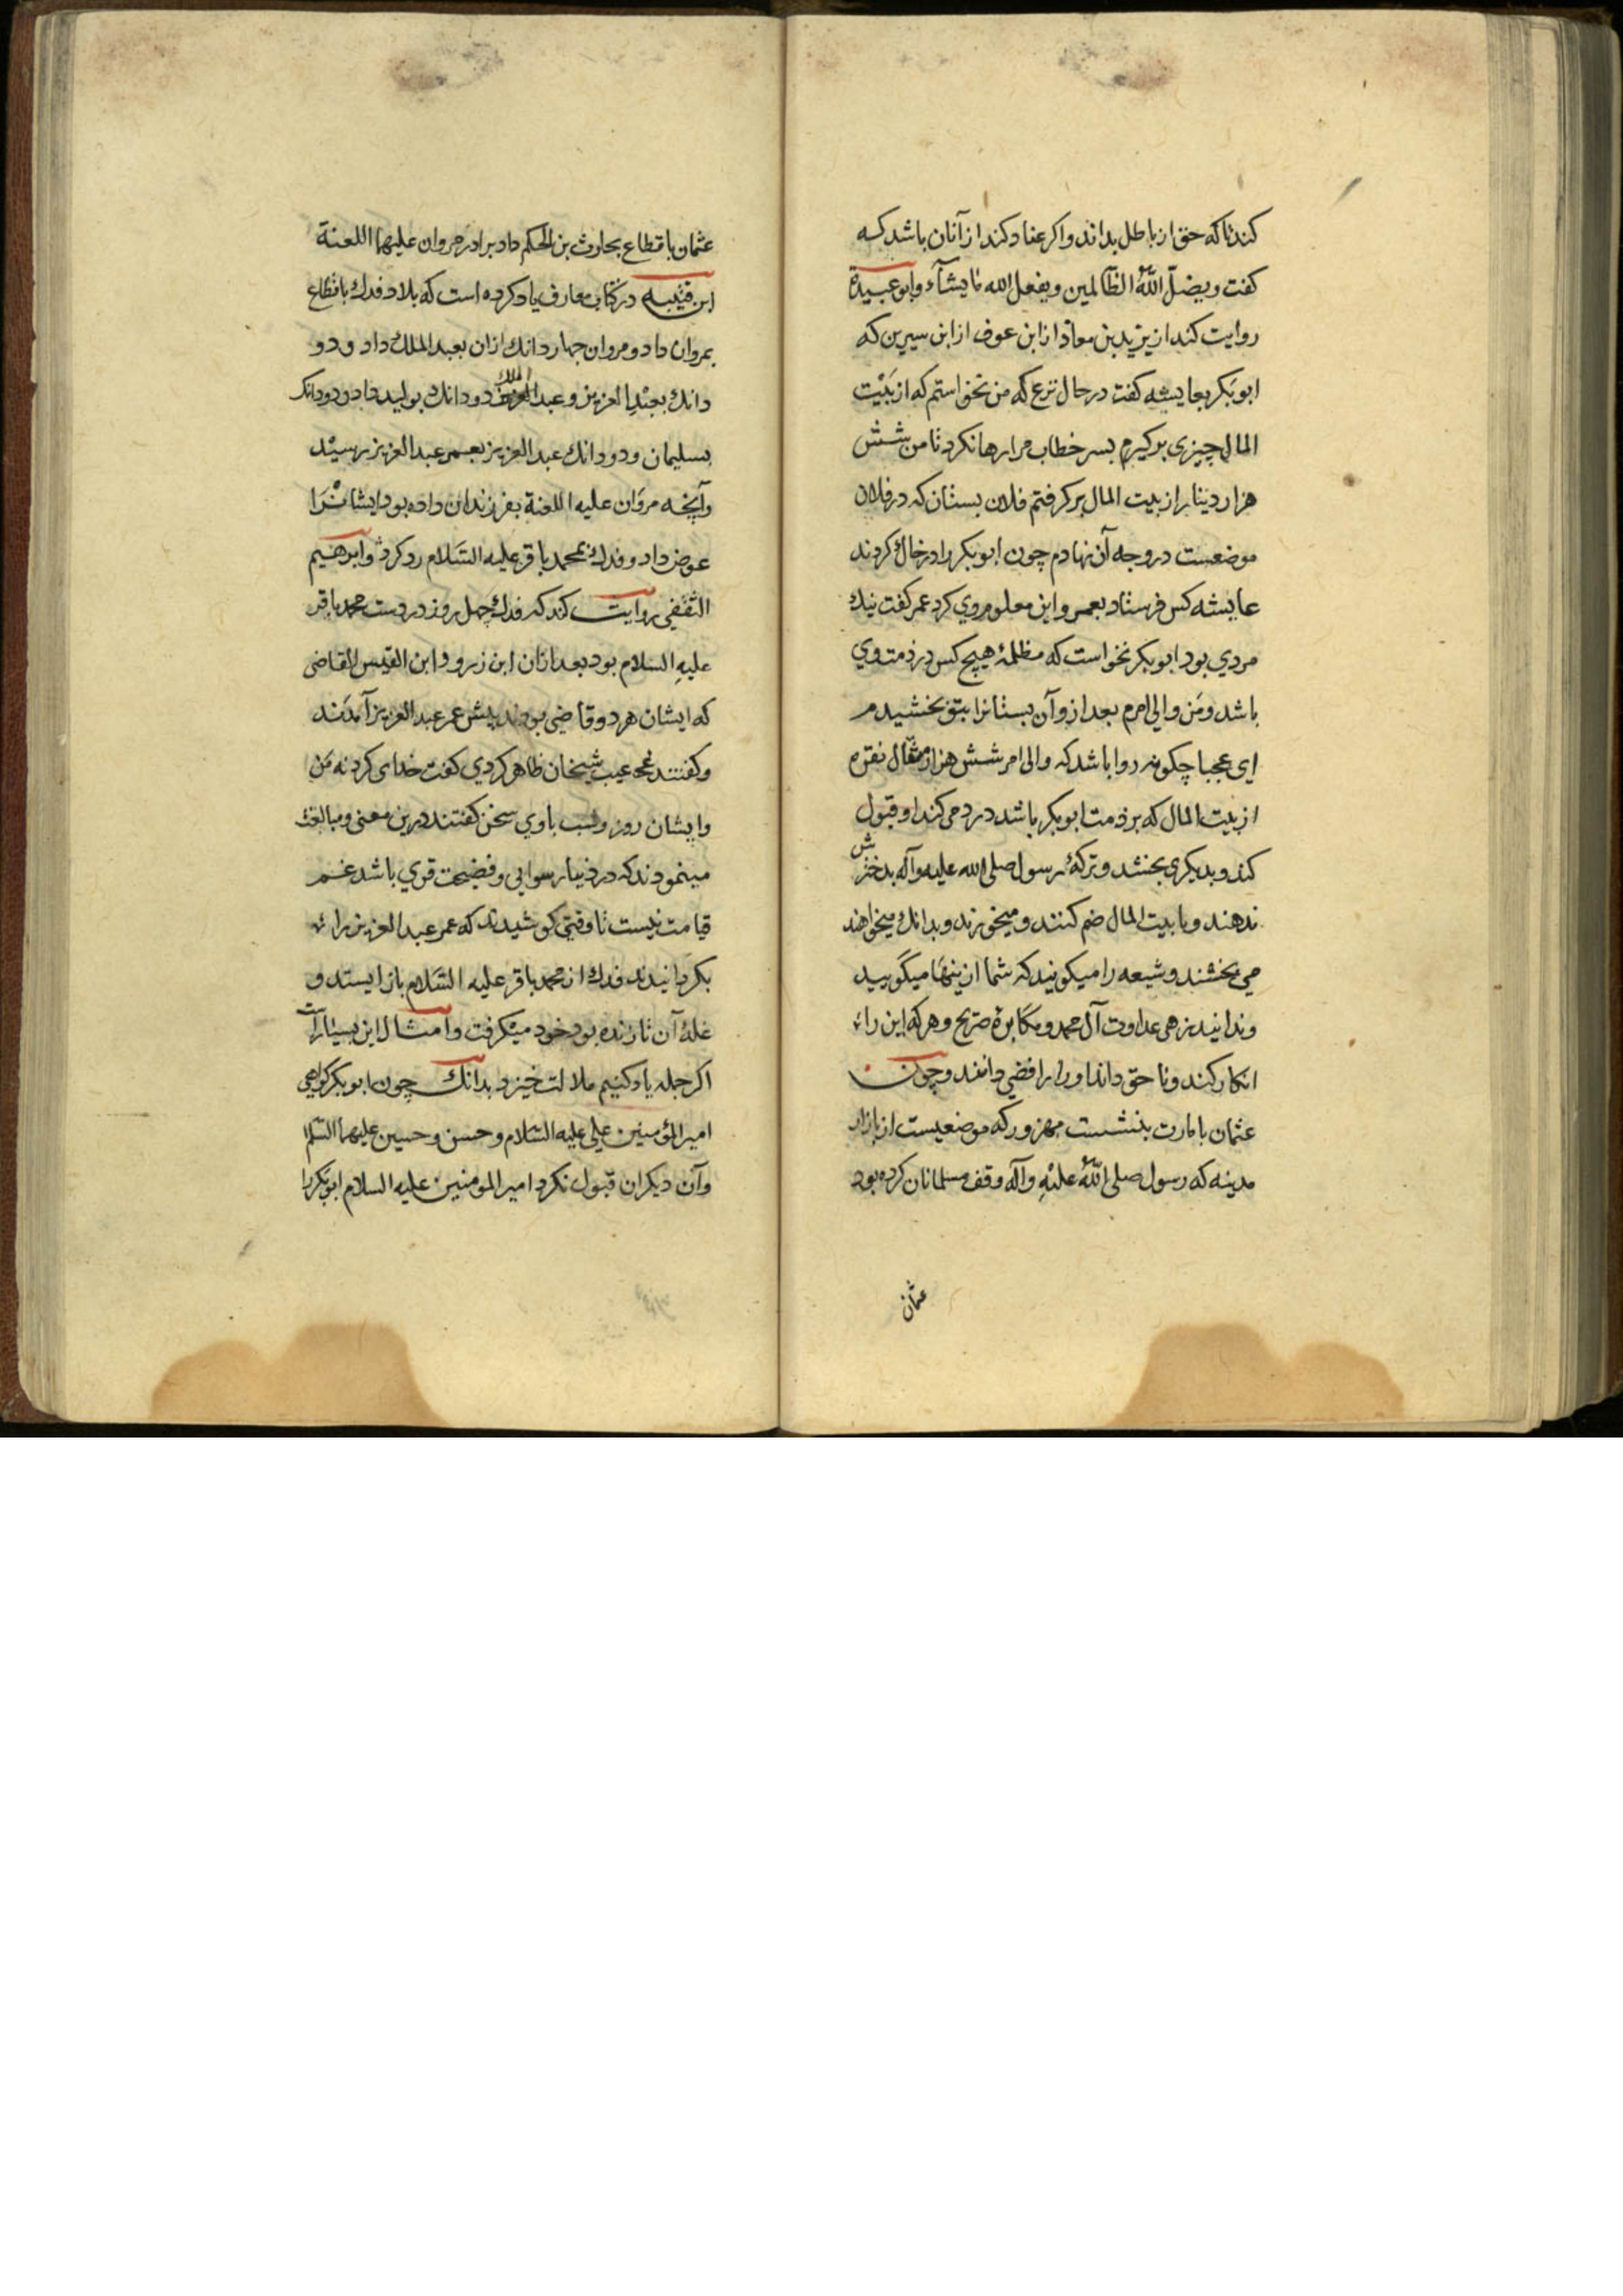 کندتا که حق از باطل بداند واکر عناد کند از آنان باشد که
کفت ویضلّ اللّٰهُ الظّالمین ویفعل الله ما یشآء وابو عبیدة
روایت کند از یزید بن معاذ از ابن عوف از ابن سیرین که
ابوبکر بعایشه کفت در حال نزع که من نخواستم که از بَیْت
المال چیزی برکیرم بسر خطاب مرا رها نکرد تا من شش
هزار دینار از بیت المال برکرفتم فلان بستان که در فلان
موضعست در وجه آن نهادم چون ابوبکر را در خاك کردند
عایشه کس فرستاد بعمر واین معلوم وی کرد عمر کفت نیك
مردی بود ابوبکر نخواست که مظلمهٔ هیچ کس در ذمت وی
باشد ومَن والی امرم بعد از و آن بستانرا بتو بخشیدم
ای عجبا چکونه روا باشد که والی امر شش هزار مثقال نقره
از بیت المال که بر ذمت ابوبکر باشد رد می کند او قبول
کند وبدیکری بخشد وترکهٔ رسول صلی الله علیه وآله بدخترش
ندهند وبا بیت المال ضم کنند ومیخورند وبدانك میخواهند
می بخشند وشیعه را میکویند که شما از ینها میگویید
وندانید زهی عداوت آل محمد ومکابرهٔ صریح وهر که این را
انکار کند وناحق داند او را رافضی دانند وچون
عثمان بامارت بنشست مهزور که موضعیست از بازار
مدینه که رسول صلی اللّٰهُ علیْهِ وآله وقف مسلمانان کرده بود
عثمان
عثمان باقطاع بحارث بن الحکم داد برادر مروان علیهما اللعنة
ابن قتیبه در کتاب معارف یاد کرده است که بلاد فدك باقطاع
بمروان داد ومروان چهار دانك ازان بعبد الملك داد ودو
دانك بعبْد العزیز وعبد الملك دودانك بولید داد ودودانك
بسلیمان ودودانك عبد العزیز بعمر عبد العزیز رسیْد
وآنچه مروان علیه اللعنة بفرزندان داده بود ایشانْرَا
عوض داد وفدك بمحمد باقر علیه السَّلام رد کرد وابرهیم
الثقفی روایت کند که فدك چهل روز در دست محمد باقر
علیهِ السلام بود بعد ازان ابن زرود وابن القیس القاضی
که ایشان هر دو قاضی بودند پیش عمر عبد العزیز آمدَند
وکفتند عیب شیخان ظاهر کردی کفت خدای کرد نه مَن
وایشان روز وشب باوی سخن کفتند درین معنی ومبالغت
مینمودند که در دنیا رسوایی وفضیحت قوی باشد غم
قیامت نیست تا وقتی کوشیدند که عمر عبد العزیز را
بکردانیدند فدك از محمد باقر علیه السَّلام باز ایستد و
غلهٔ آن تا زنده بود خود میْکرفت وامثال این بسیار است
اکر جمله یاد کنیم ملالت خیزد بدانك چون ابوبکر کواهی
امیر المؤمنین علی علیه السَّلام وحسن وحسین علیهما السَّلام
وآن دیکران قبول نکرد امیر المومنین علیه السلام ابوبَکر را